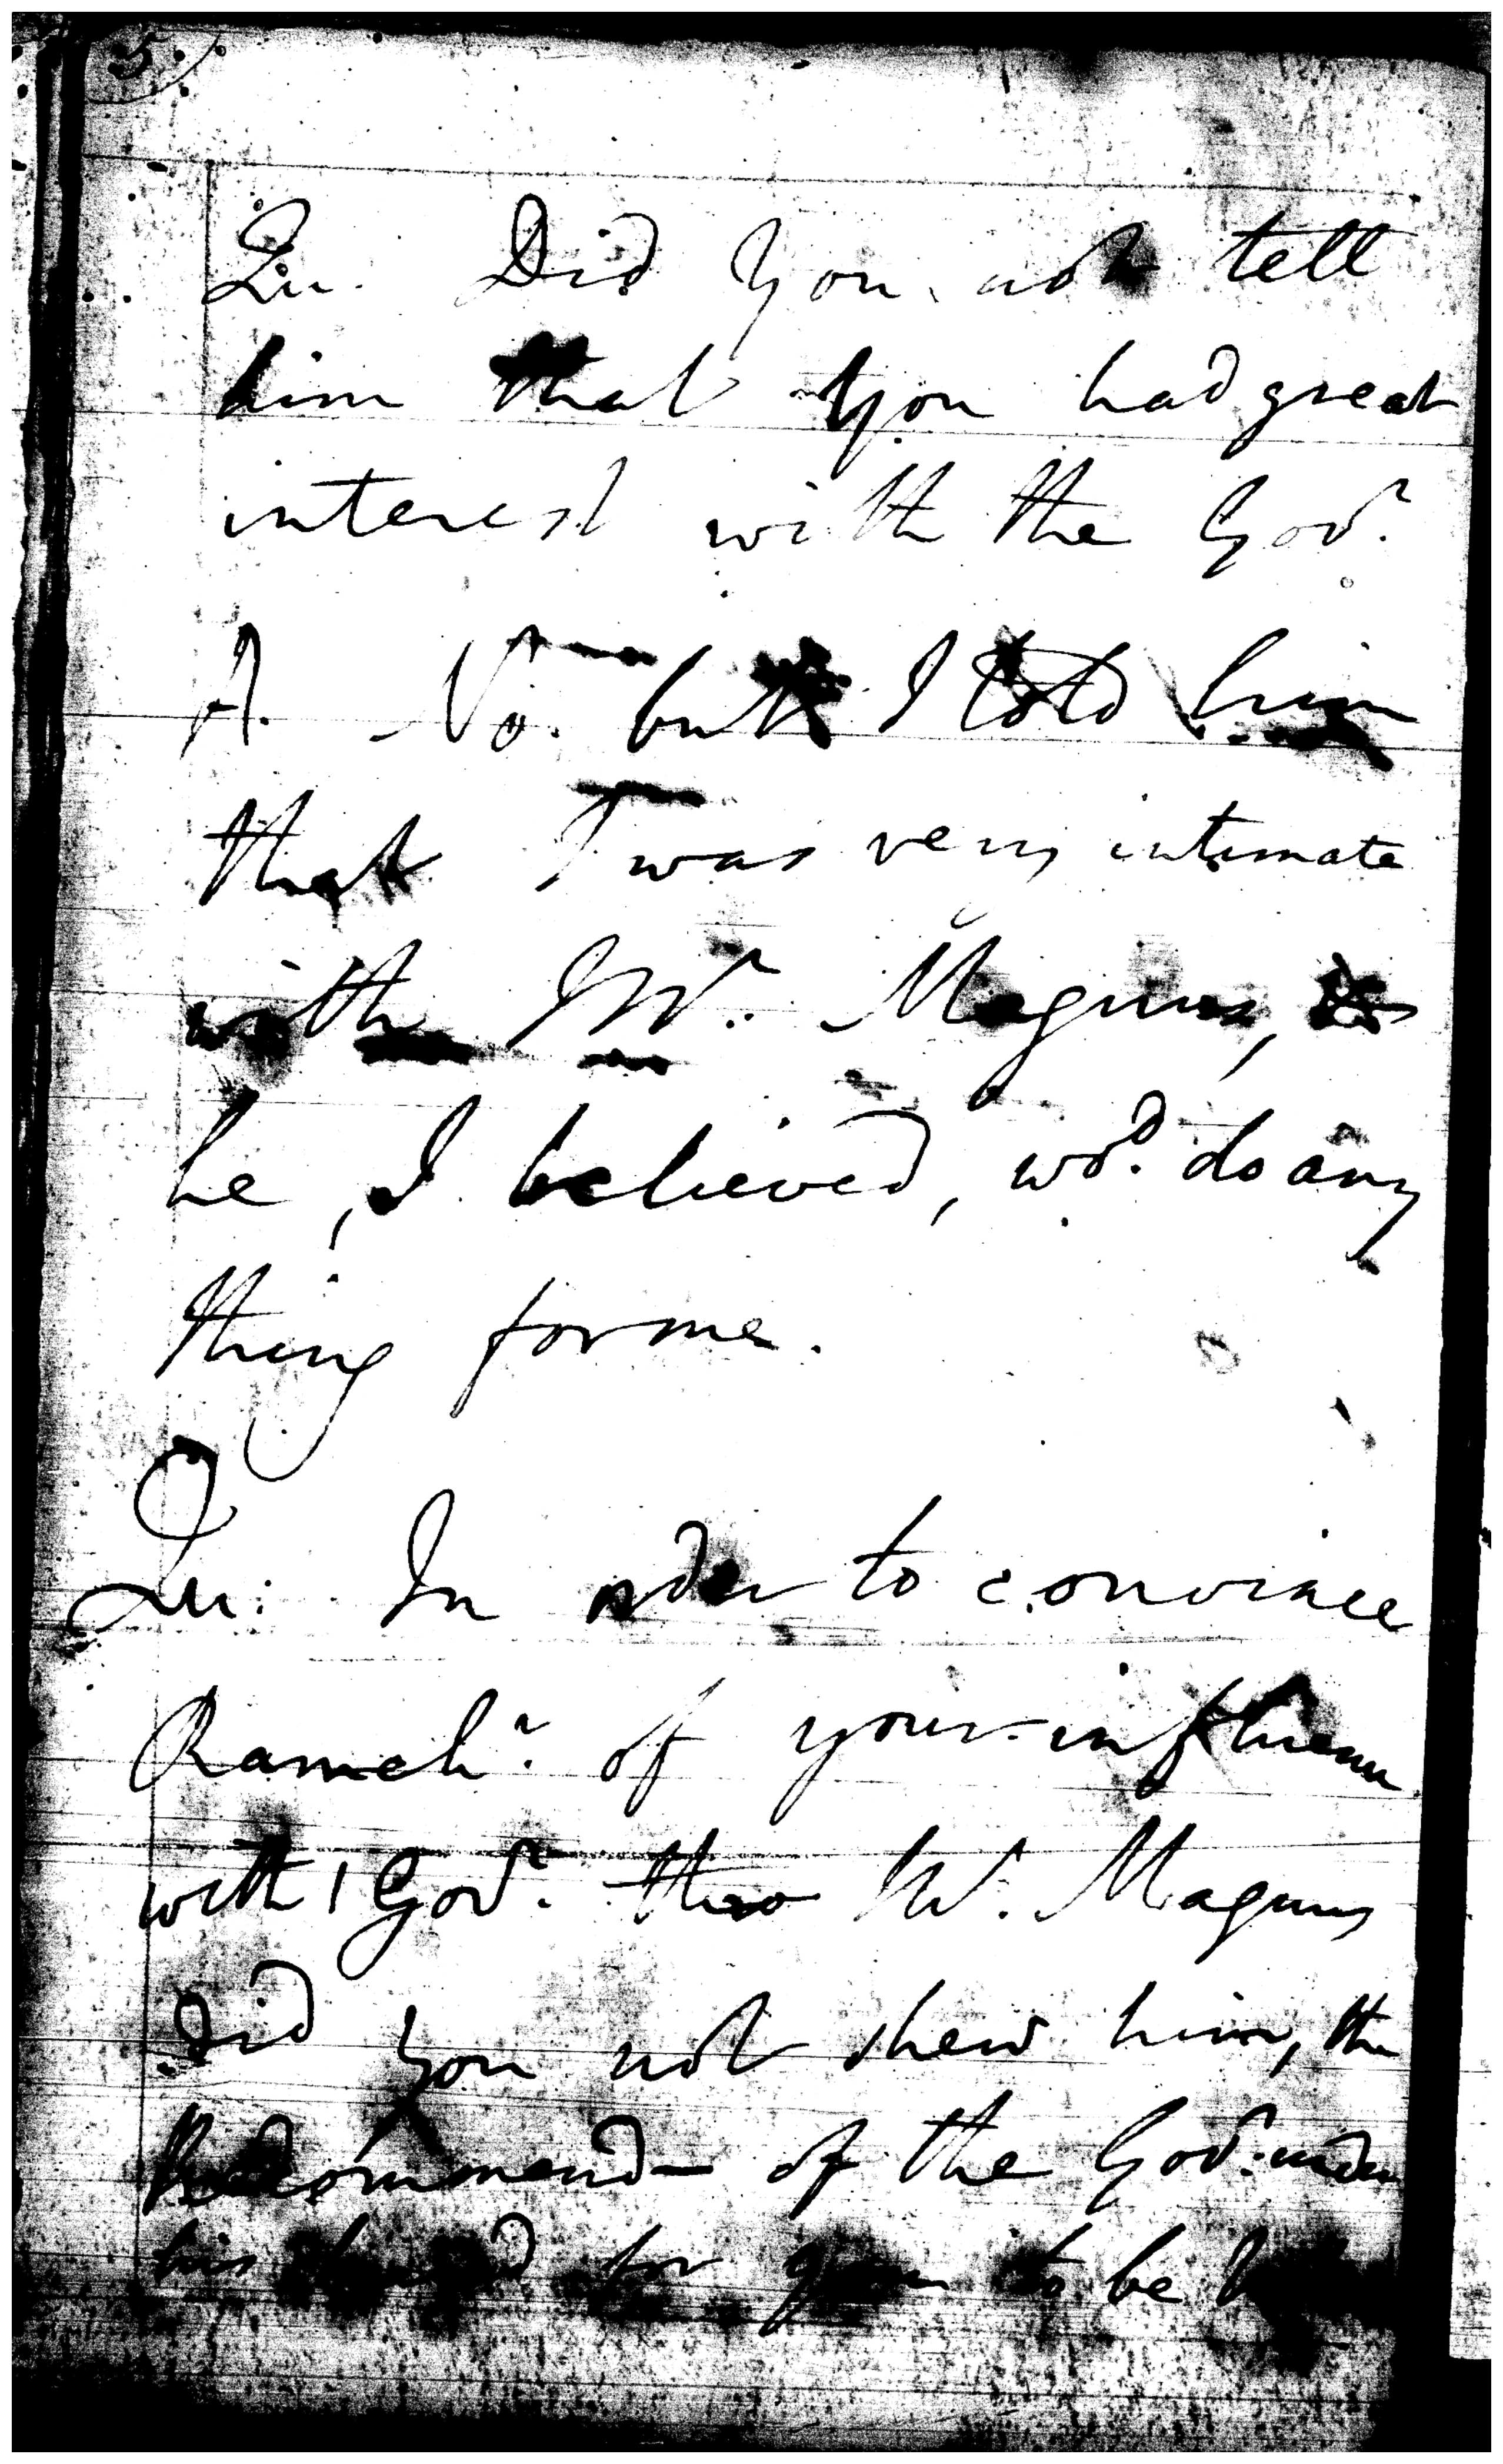 5
Qu. Did You not tell
him that You had great
interest with the Govr.
A. No. but I told him
that I was very intimate
with Mr. Magnus, &
he, I believed, wod. do any
thing for me.
Qu: In order to convince
Ramchr. of your influence
with Govr. thro Mr. Magnus
did You not shew him, the
Recommend- of the Govr. under
his hand for you to be